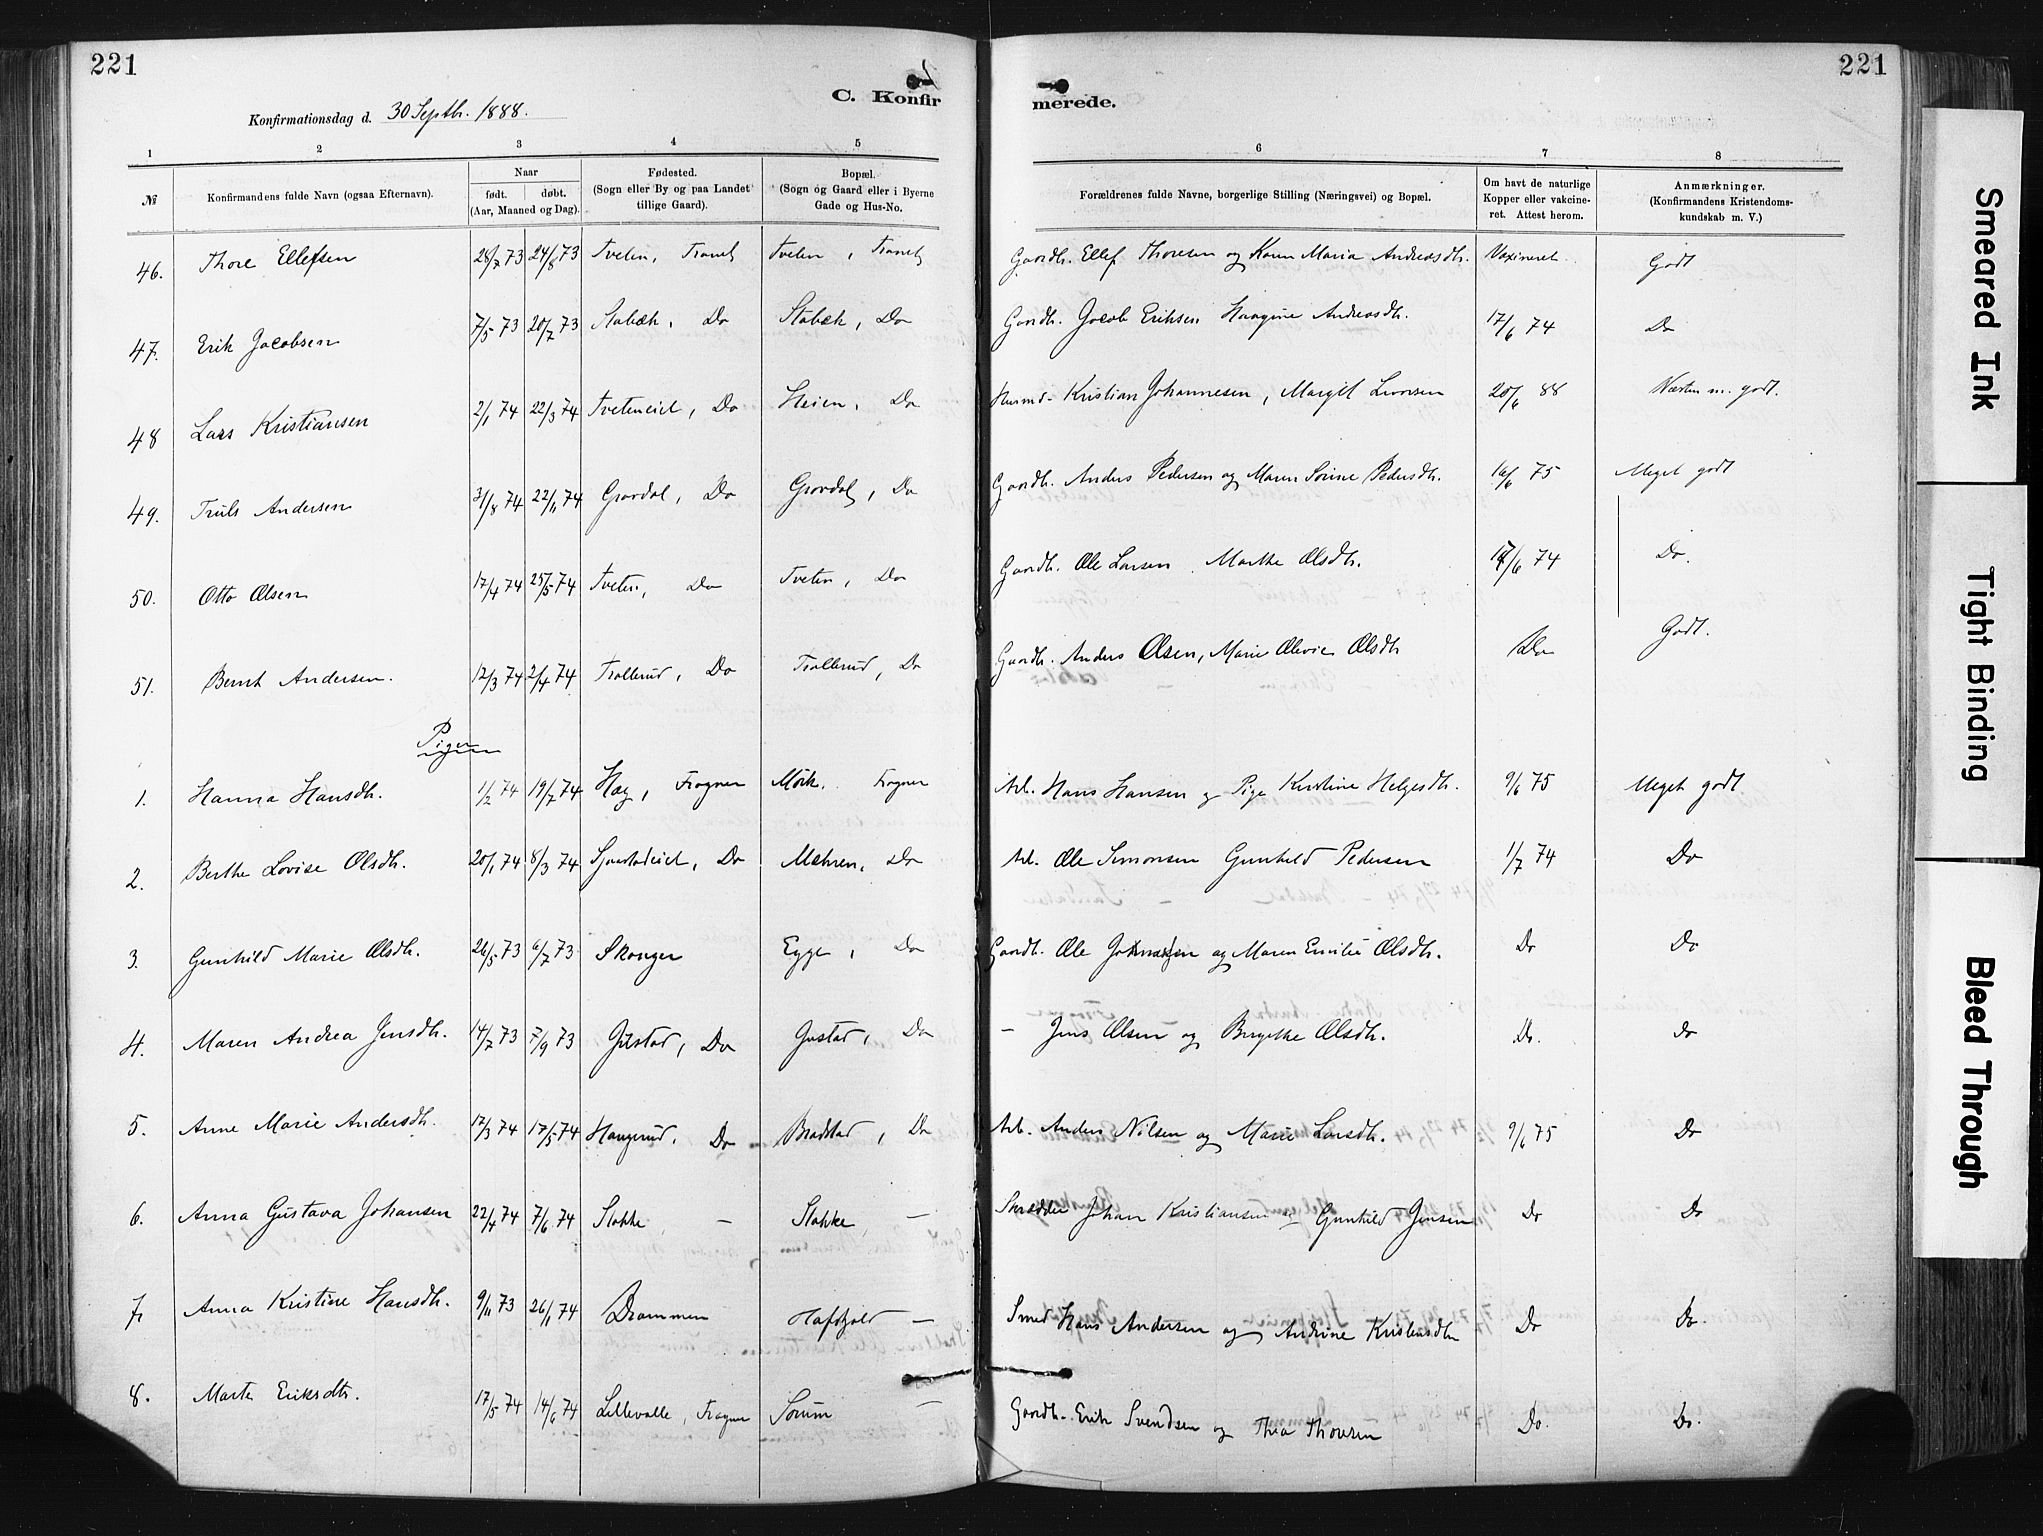 221
221
C. Konfir
merede.
Konfirmationsdag d. 30 Septbr. 1888.
1 2 3 4 5 6 7 8
№ Konfirmandens fulde Navn (ogsaa Efternavn). Naar født. døbt. (Aar, Maaned og Dag). Fødested. (Sogn eller By og paa Landet tillige Gaard). Bopæl. (Sogn og Gaard eller i Byerne Gade og Hus-No. Forældrenes fulde Navne, borgerlige Stilling (Næringsvei) og Bopæl. Om havt de naturlige Kopper eller vakcineret. Attest herom. Anmærkninger. (Konfirmandens Kristendomskundskab m. V.)
46. Thore Ellefsen 28/7 73 24/8 73 Tveten, Tveten, Gaardb. Ellef Thoresen og Karen Maria Andreasdtr. Vaxineret Godt
47. Erik Jacobsen 7/5 73 20/7 73 Stabæk, Do Stabæk, Do Gaardb. Jacob Eriksen Haagine Andreasdtr. 17/6 74 Do
48 Lars Kristiansen 2/1 74 22/3 74 Tveteneiet, Do Heien, Do Husmd. Kristian Johannesen, Margit Larsen 20/6 88 Næsten m. godt.
49. Truls Andersen 31/8 74 22/11 74 Grordal, Do Grordal, Do Gaardb. Anders Pedersen og Maren Sørine Pedersdtr. 16/6 75 Meget godt
50. Otto Olsen 17/4 74 25/5 74 Tveten, Do Tveten, Do Gaardb. Ole Larsen Marthe Olsdtr. 17/6 74 Do.
51. Bernt Andersen. 12/3 74 2/4 74 Trollerud, Do Trollerud, Do Gaardb. Anders Olsen, Marie Olevie Olsdtr Do Godt.
Piger
1. Hanna Hansdtr. 1/2 74 19/7 74 Hæg, Frogner Mørk. Frogner Arb. Hans Hansen og Pige Kirstine Helgesdtr. 9/6 75 Meget godt
2. Berthe Lovise Olsdtr. 20/1 74 8/3 74 Sjaastadeiet, Do Mæhren, Do Arb. Ole Simonsen Gunhild Pedersen 1/7 74 Do
3. Gunhild Marie Olsdtr. 26/5 73 6/7 73 Skonger Egge, Do Gaardb. Ole og Maren Emilie Olsdtr. Do Do
4. Maren Andrea Jensdtr. 14/7 73 7/9 73 Gustad, Do Gustad, Do - Jens Olsen og Birgitte Olsdtr. Do. do
5. Anne Marie Andersdtr. 17/3 74 17/5 74 Haugerud, Do Bradstad, Do Arb. Anders Nilsen og Marie Larsdtr. 9/6 75 Do
6. Anna Gustava Johansen 22/4 74 7/6 74 Stokke - Stokke - Skrædder Johan Kristiansen og Gunhild Jensen Do Do
7. Anna Kristine Hansdtr. 9/11 73 26/1 74 Drammen - Smed Hans Andersen og Andrine Kristensdtr Do Do.
8. Marte Eriksdtr. 17/5 74 14/6 74 Lillevalle, Frogner Sørum - Gaardb. Erik Svendsen og Thea Thoresen Do. Do.
Smeared Ink
Tight Binding
Bleed Through